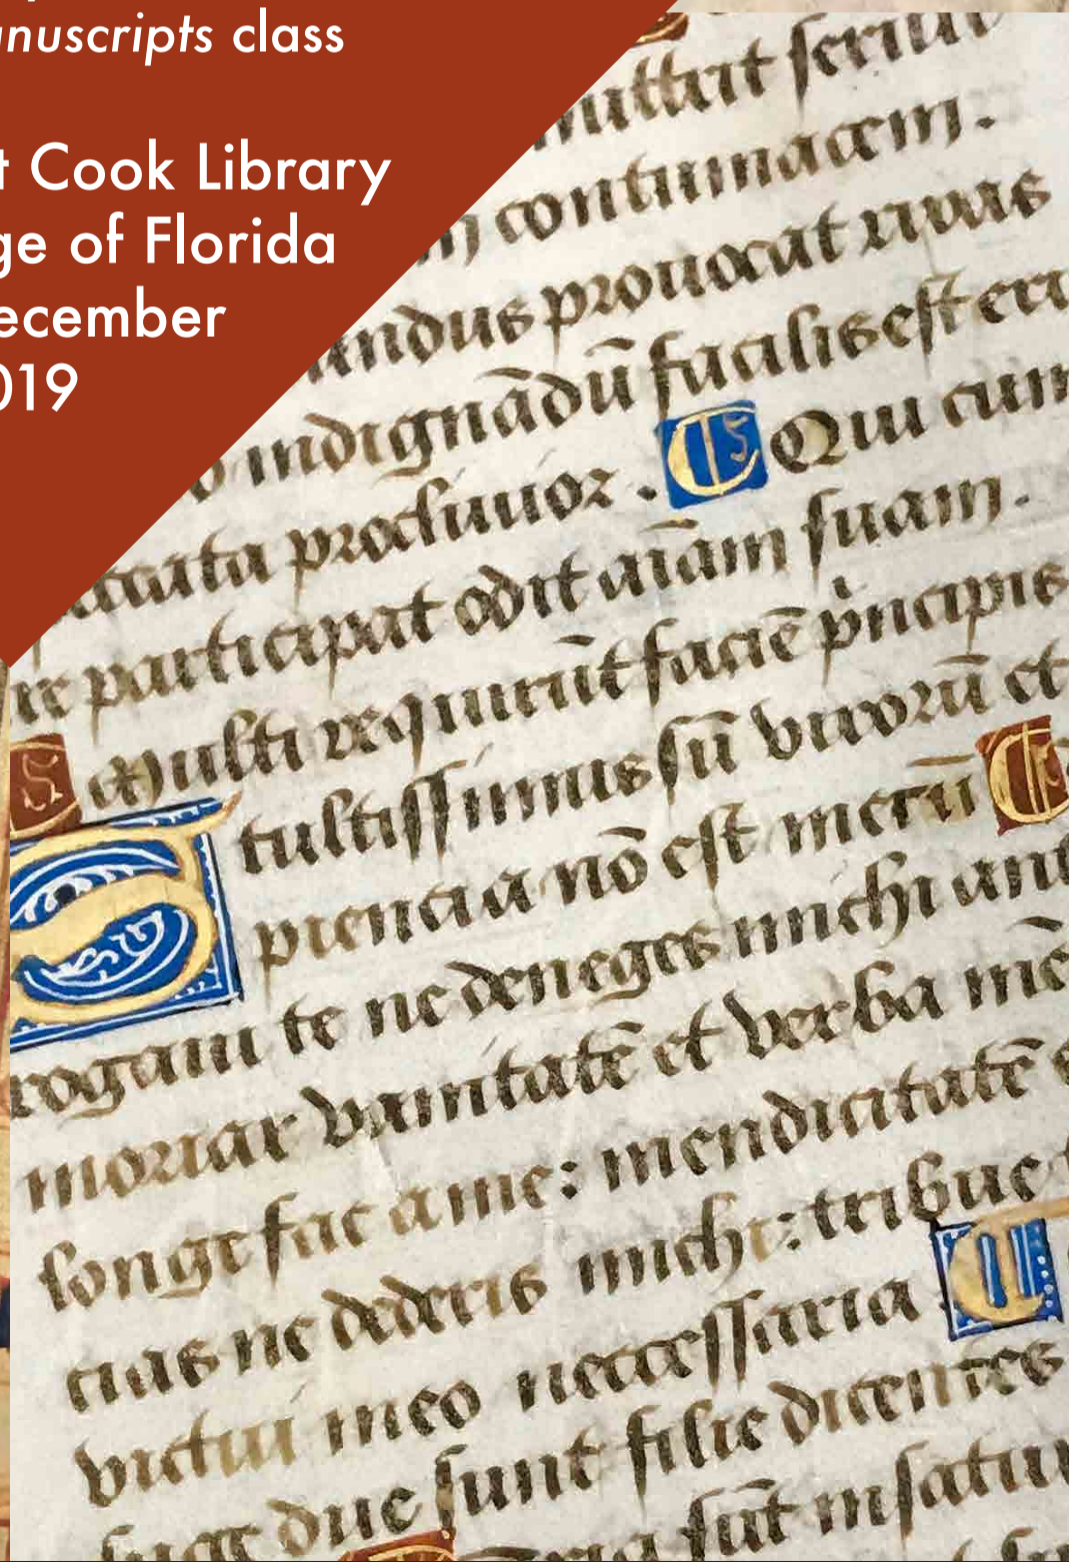 nuscripts class
t Cook Library
ge of Florida
ecember
019
contumacem.
provocat rixas
indignādū facilis est
proclivior. Qui cum
participat odit aīam suam.
Multi requirūt faciē pncipis
S tultissimus sū virorū et
piencia nō est mecū
rogavi te ne deneges michi
moriar vanitatē et verba
longe fac a me: mendicitatē
cias ne dederis michi: tribue
victui meo necessaria
due sunt filie dicentes
sūt